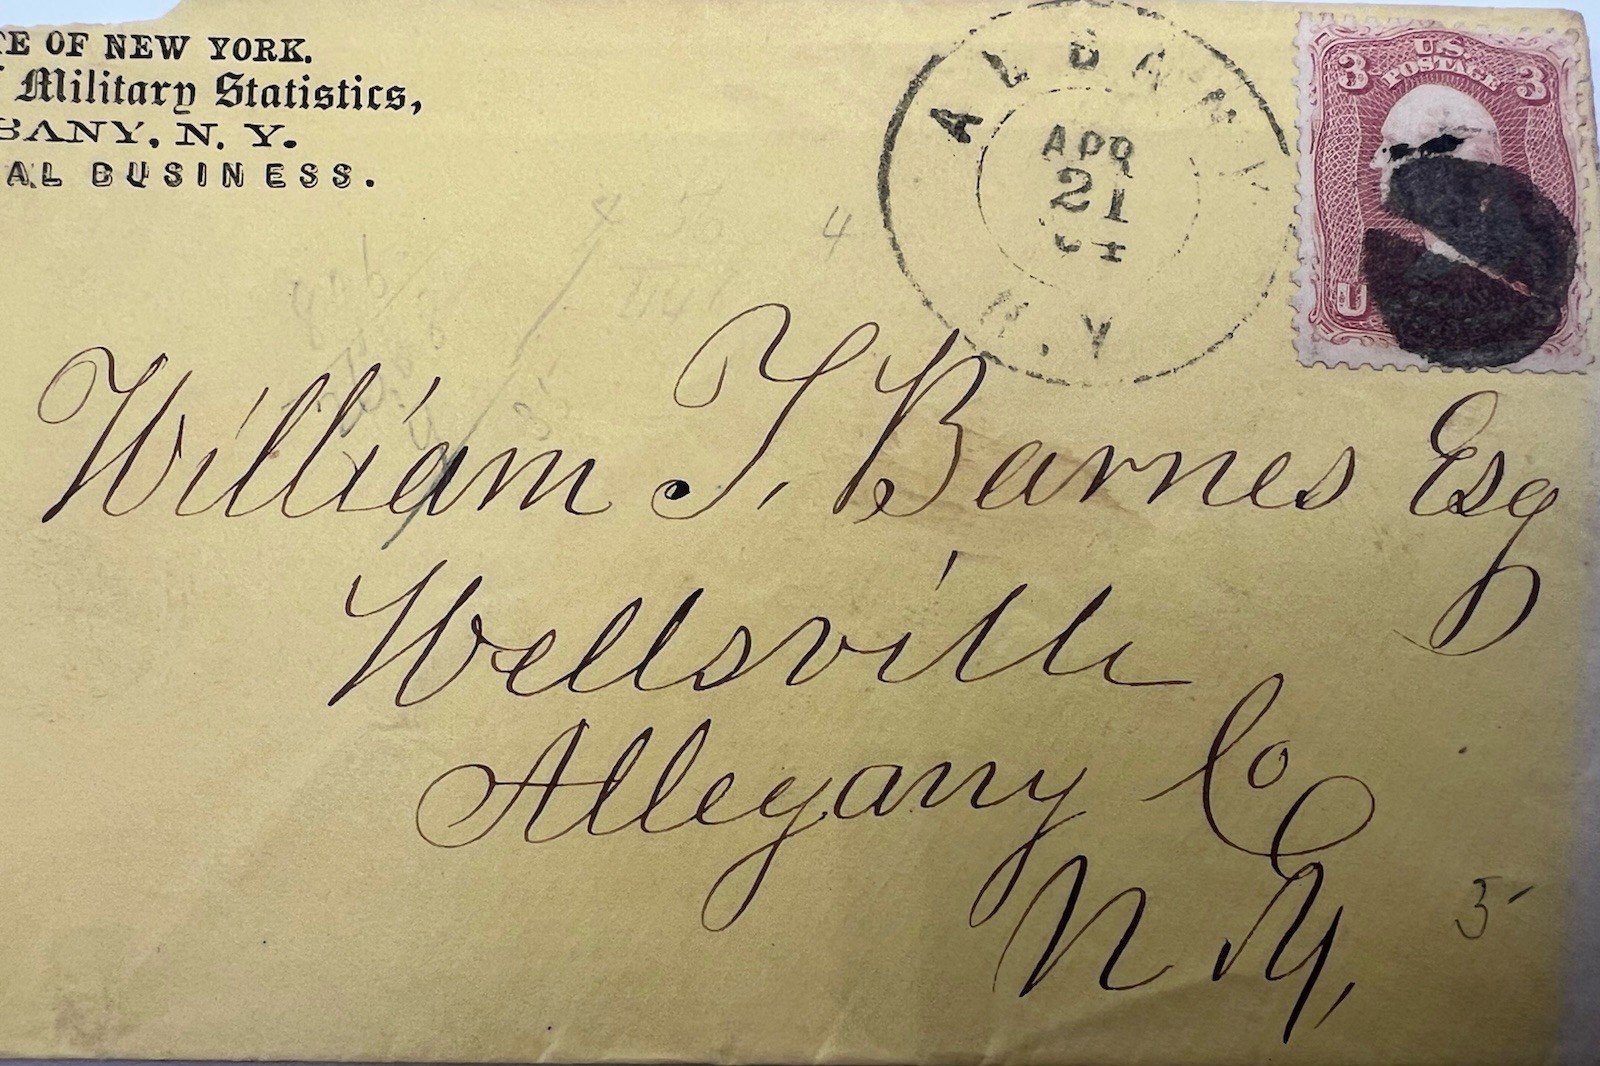 TE OF NEW YORK.
f Military Statistics,
BANY, N. Y.
AL BUSINESS.
ALBANY
APR
21
64
N.Y
U.S.
POSTAGE
3 3
U
4
William T. Barnes Esq
Wellsville
Allegany Co
N. Y,
5